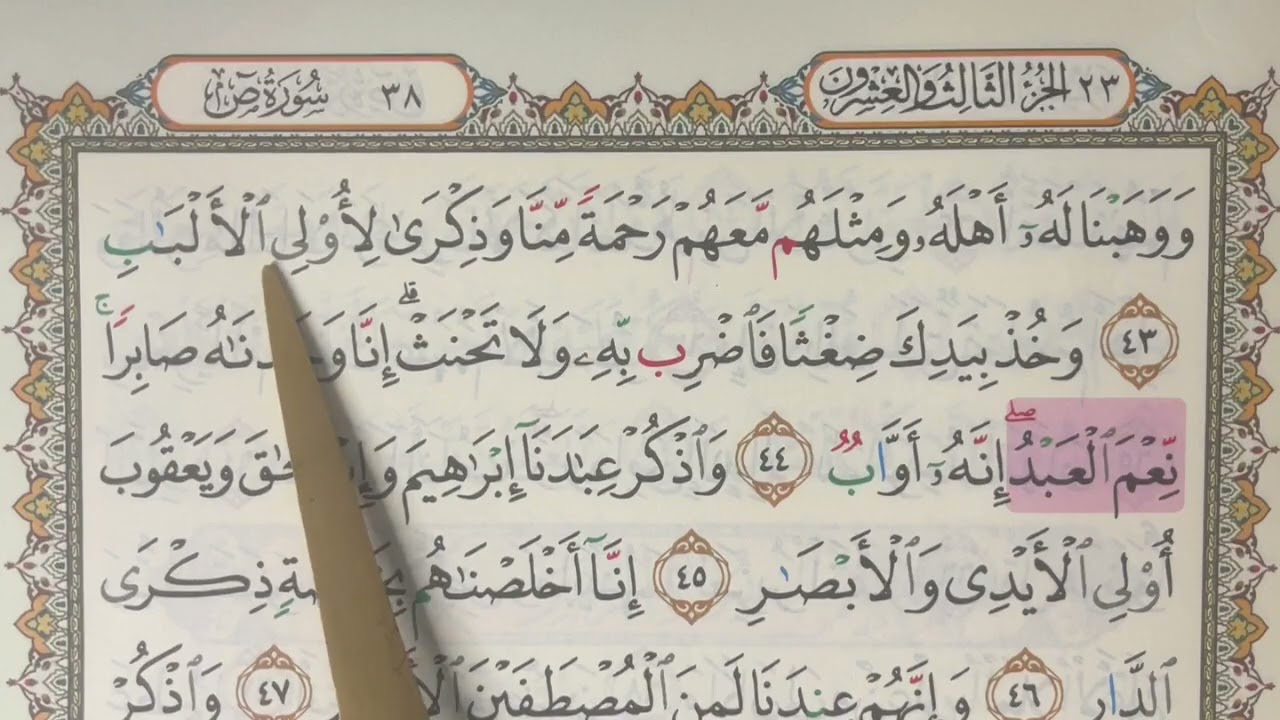 ٢٣ الجُزْءُ الثَّالِثُ وَالعِشْرُونَ
٣٨ سُورَةُ صٓ
وَوَهَبْنَا لَهُۥٓ أَهْلَهُۥ وَمِثْلَهُم مَّعَهُمْ رَحْمَةً مِّنَّا وَذِكْرَىٰ لِأُوْلِي ٱلْأَلْبَٰبِ
٤٣ وَخُذْ بِيَدِكَ ضِغْثًا فَٱضْرِب بِّهِۦ وَلَا تَحْنَثْ ۗ إِنَّا صَابِرًا ۚ
نِّعْمَ ٱلْعَبْدُ ۖ إِنَّهُۥٓ أَوَّابٌ ٤٤ وَٱذْكُرْ عِبَٰدَنَآ إِبْرَٰهِيمَ وَيَعْقُوبَ
أُوْلِي ٱلْأَيْدِى وَٱلْأَبْصَٰرِ ٤٥ إِنَّآ أَخْلَصْنَٰهُم ذِكْرَى
ٱلدَّارِ ٤٦ وَإِنَّهُمْ عِندَنَا لَمِنَ ٱلْمُصْطَفَيْنَ ٤٧ وَٱذْكُرْ